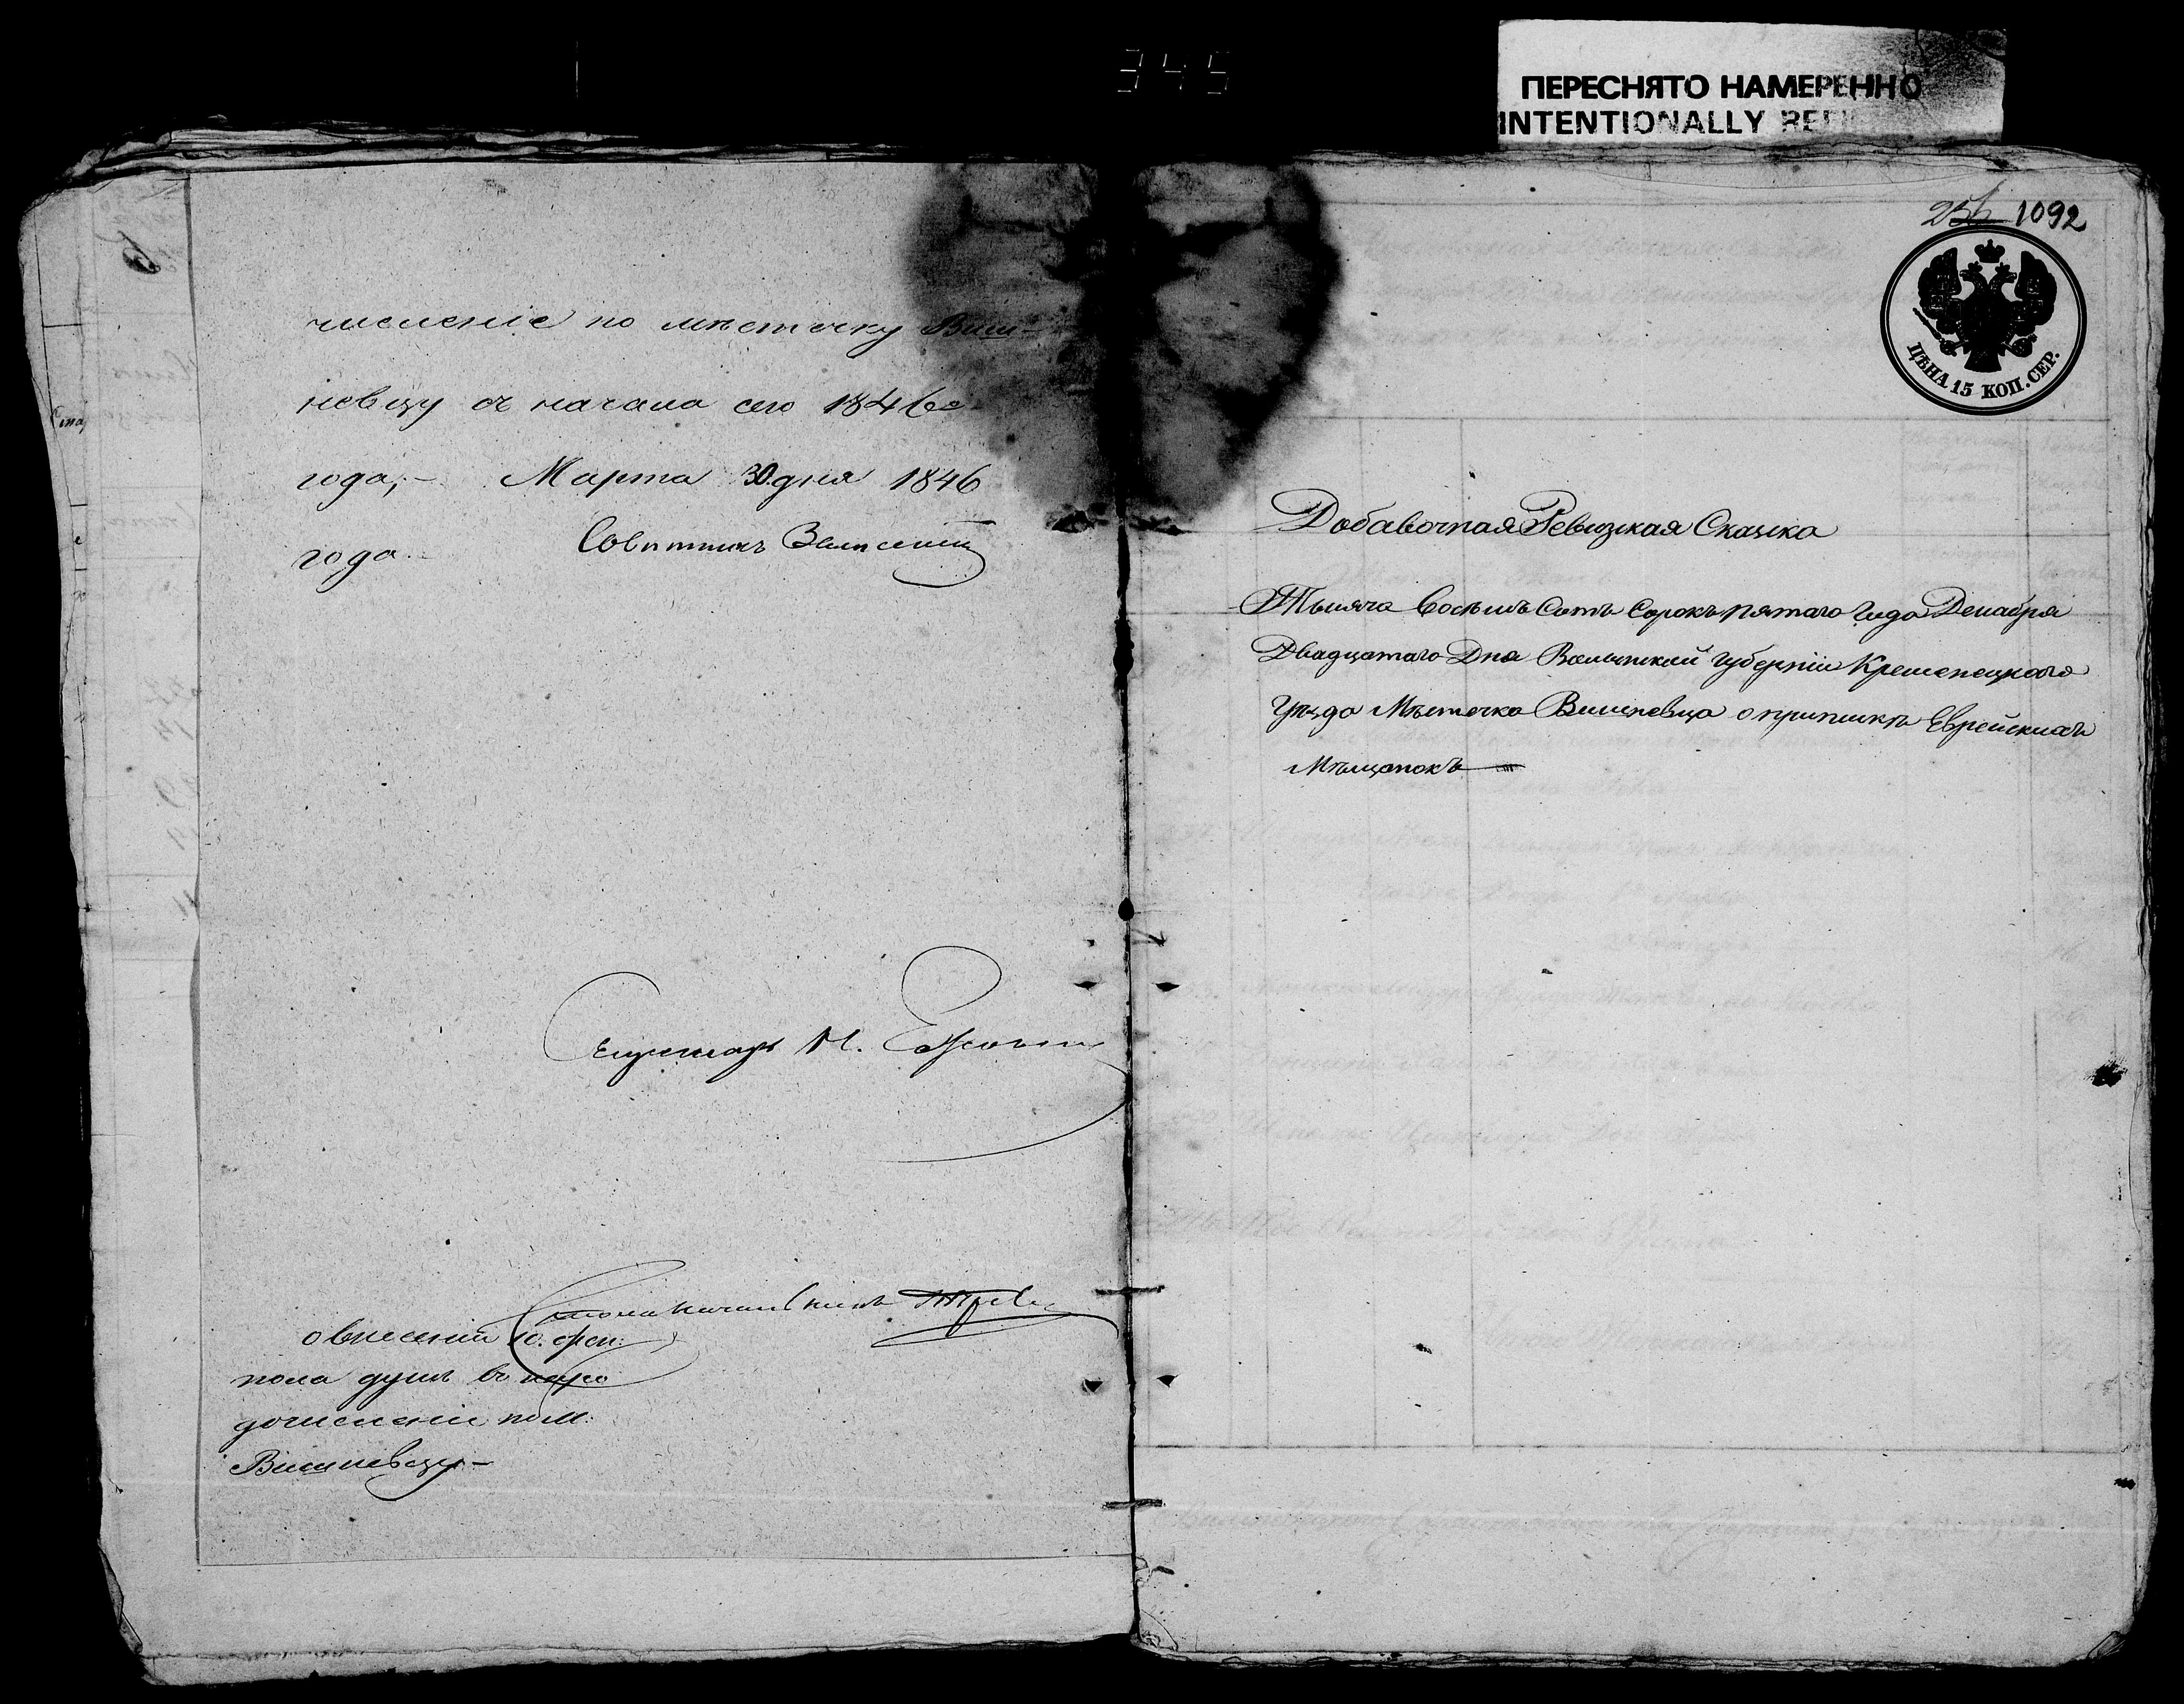 345
ПЕРЕСНЯТО НАМЕРЕННО
INTENTIONALLY
численіе по мѣстечку Виш-
невцу съ начала сего 1846го
года, - Марта 30 дня 1846
года. Совѣтникъ
Секретарь М.
Столоначальникъ
о внесеніи 10. жен:
пола душъ въ
дочисленіи по м:
Вишневцу -
1092
ЦѢНА 15 КОП. СЕР.
Добавочная Ревизкая Сказка
Тысяча Восемь Сотъ Сорокъ пятаго Года Декабря
Двадцатаго Дня Волынской Губерніи Кременецкого
Уѣзда Мѣстечка Вишневца о припискѣ Еврейскихъ
Мѣщанокъ